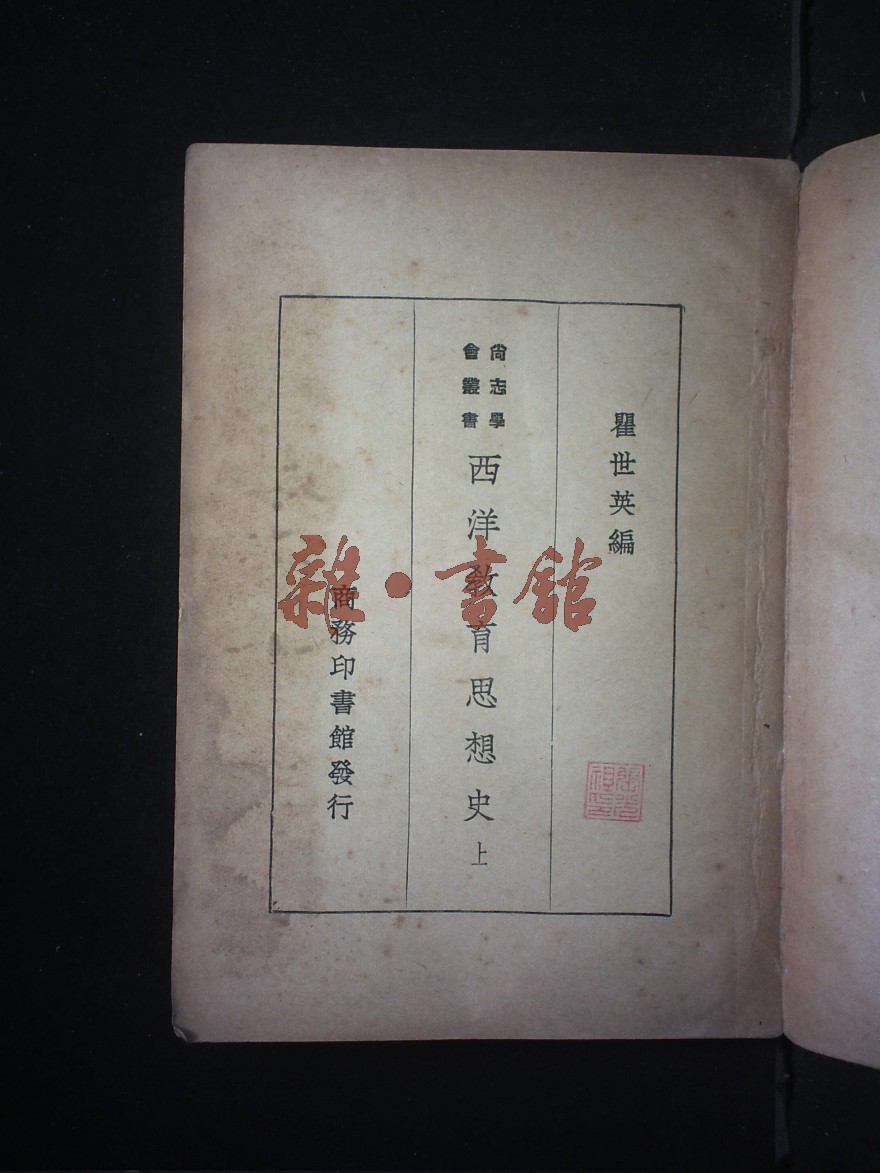 瞿世英編
尚志學
會叢書
西洋教育思想史 上
商務印書館發行
雜·書館